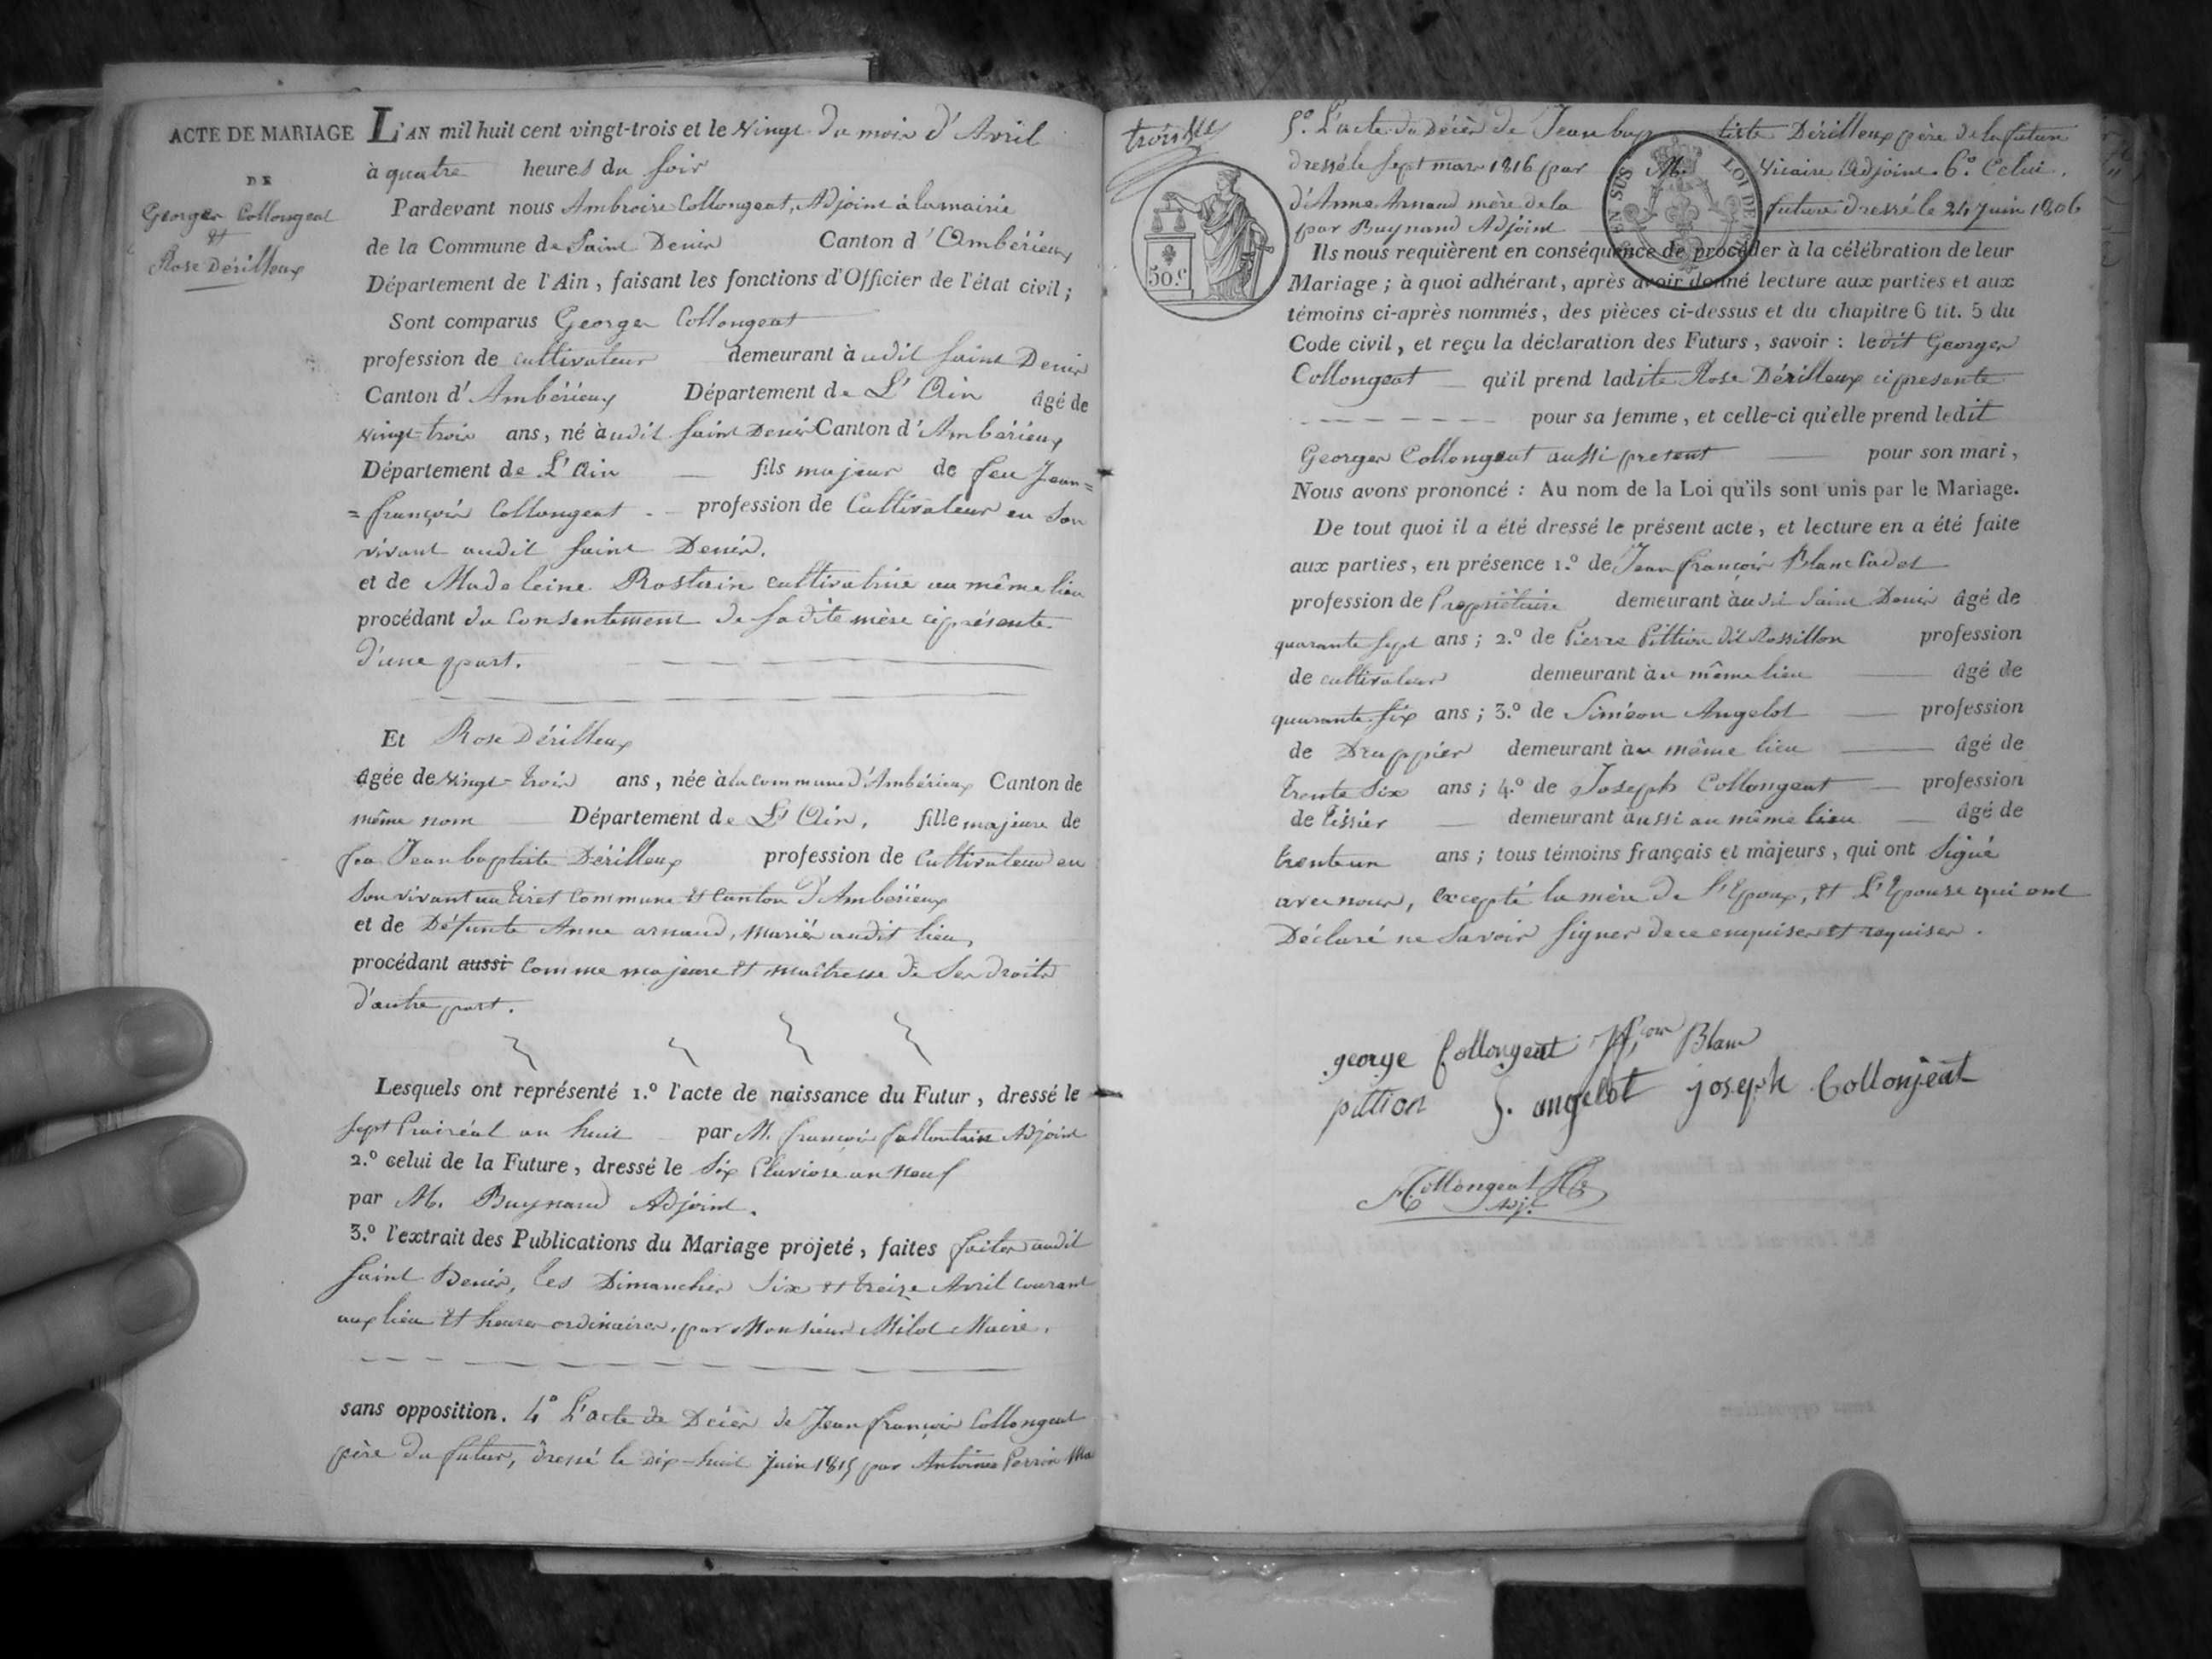 ACTE DE MARIAGE
DE
Georges Collongeat
et
Rose Dérilleux
L'AN mil huit cent vingt-trois et le vingt du mois d'Avril
à quatre heures du soir
Pardevant nous Ambroise Collongeat, Adjoint à la mairie
de la Commune de Saint Denis Canton d'Ambérieux
Département de l'Ain, faisant les fonctions d'Officier de l'état civil;
Sont comparus Georges Collongeat
profession de cultivateur demeurant àudit Saint Denis
Canton d'Ambérieux Département de L'Ain âgé de
vingt-trois ans, né àudit Saint Denis Canton d'Ambérieux
Département de L'Ain fils majeur de feu Jean=
=françois Collongeat profession de Cultivateur en son
vivant audit Saint Denis.
et de Madeleine Rostain cultivatrice au même lieu
procédant du Consentement de sadite mère ci présente
d'une part.
Et Rose Dérilleux
âgée de vingt-trois ans, née à la commune d'Ambérieux Canton de
même nom Département de L'Ain, fille majeure de
feu Jean baptiste Dérilleux profession de Cultivateur en
son vivant au Tiret Commune et Canton d'Ambérieux
et de Défunte Anne arnaud, mariés audit lieu,
procédant aussi comme majeure et maîtresse de ses droits
d'autre part.
Lesquels ont représenté 1.º l'acte de naissance du Futur, dressé le
sept Prairéal an huit par M. françois Adjoint
2.º celui de la Future, dressé le six Pluviose an neuf
par M. Buynand Adjoint.
3.º l'extrait des Publications du Mariage projeté, faites faites audit
Saint Denis, les Dimanches six et treize Avril courant
aux lieu et heures ordinaires, par Monsieur Milot Maire.
sans opposition. 4º L'acte de Décès de Jean françois Collongeat
père du futur, dressé le dix-huit juin 1815 par Antoine Perrin Ma
troisie
50.c
EN SUS LOI DE
5º. L'acte du Décès de Jean bap tiste Dérilleux père de la future
dressé le sept mars 1816 par M. Vicaire Adjoint 6.º Celui
d'Anne Arnaud mère de la future dressé le 24 Juin 1806
par Buynand Adjoint
Ils nous requièrent en conséquence de procéder à la célébration de leur
Mariage; à quoi adhérant, après avoir donné lecture aux parties et aux
témoins ci-après nommés, des pièces ci-dessus et du chapitre 6 tit. 5 du
Code civil, et reçu la déclaration des Futurs, savoir: ledit Georges
Collongeat qu'il prend ladite Rose Dérilleux ci presente
pour sa femme, et celle-ci qu'elle prend ledit
Georges Collongeat aussi present pour son mari,
Nous avons prononcé: Au nom de la Loi qu'ils sont unis par le Mariage.
De tout quoi il a été dressé le présent acte, et lecture en a été faite
aux parties, en présence 1.º de Jean françois Blanc Cadet
profession de Propriétaire demeurant àudit Saint Denis âgé de
quarante sept ans; 2.º de Pierre Pittion dit Rossillon profession
de cultivateur demeurant àu même lieu âgé de
quarante six ans; 3.º de Siméon Angelot profession
de Drappier demeurant àu même lieu âgé de
trente six ans; 4.º de Joseph Collongeat profession
de Tissier demeurant àussi au même lieu âgé de
trente un ans; tous témoins français et majeurs, qui ont signé
avec nous, excepté la mère de l'Epoux, et L'Epouse qui ont
Déclaré ne savoir signer de ce enquises et requises.
george Collongeat Jfcois Blanc
pittion S. angelot joseph Collonjeat
Collongeat
Adj.t